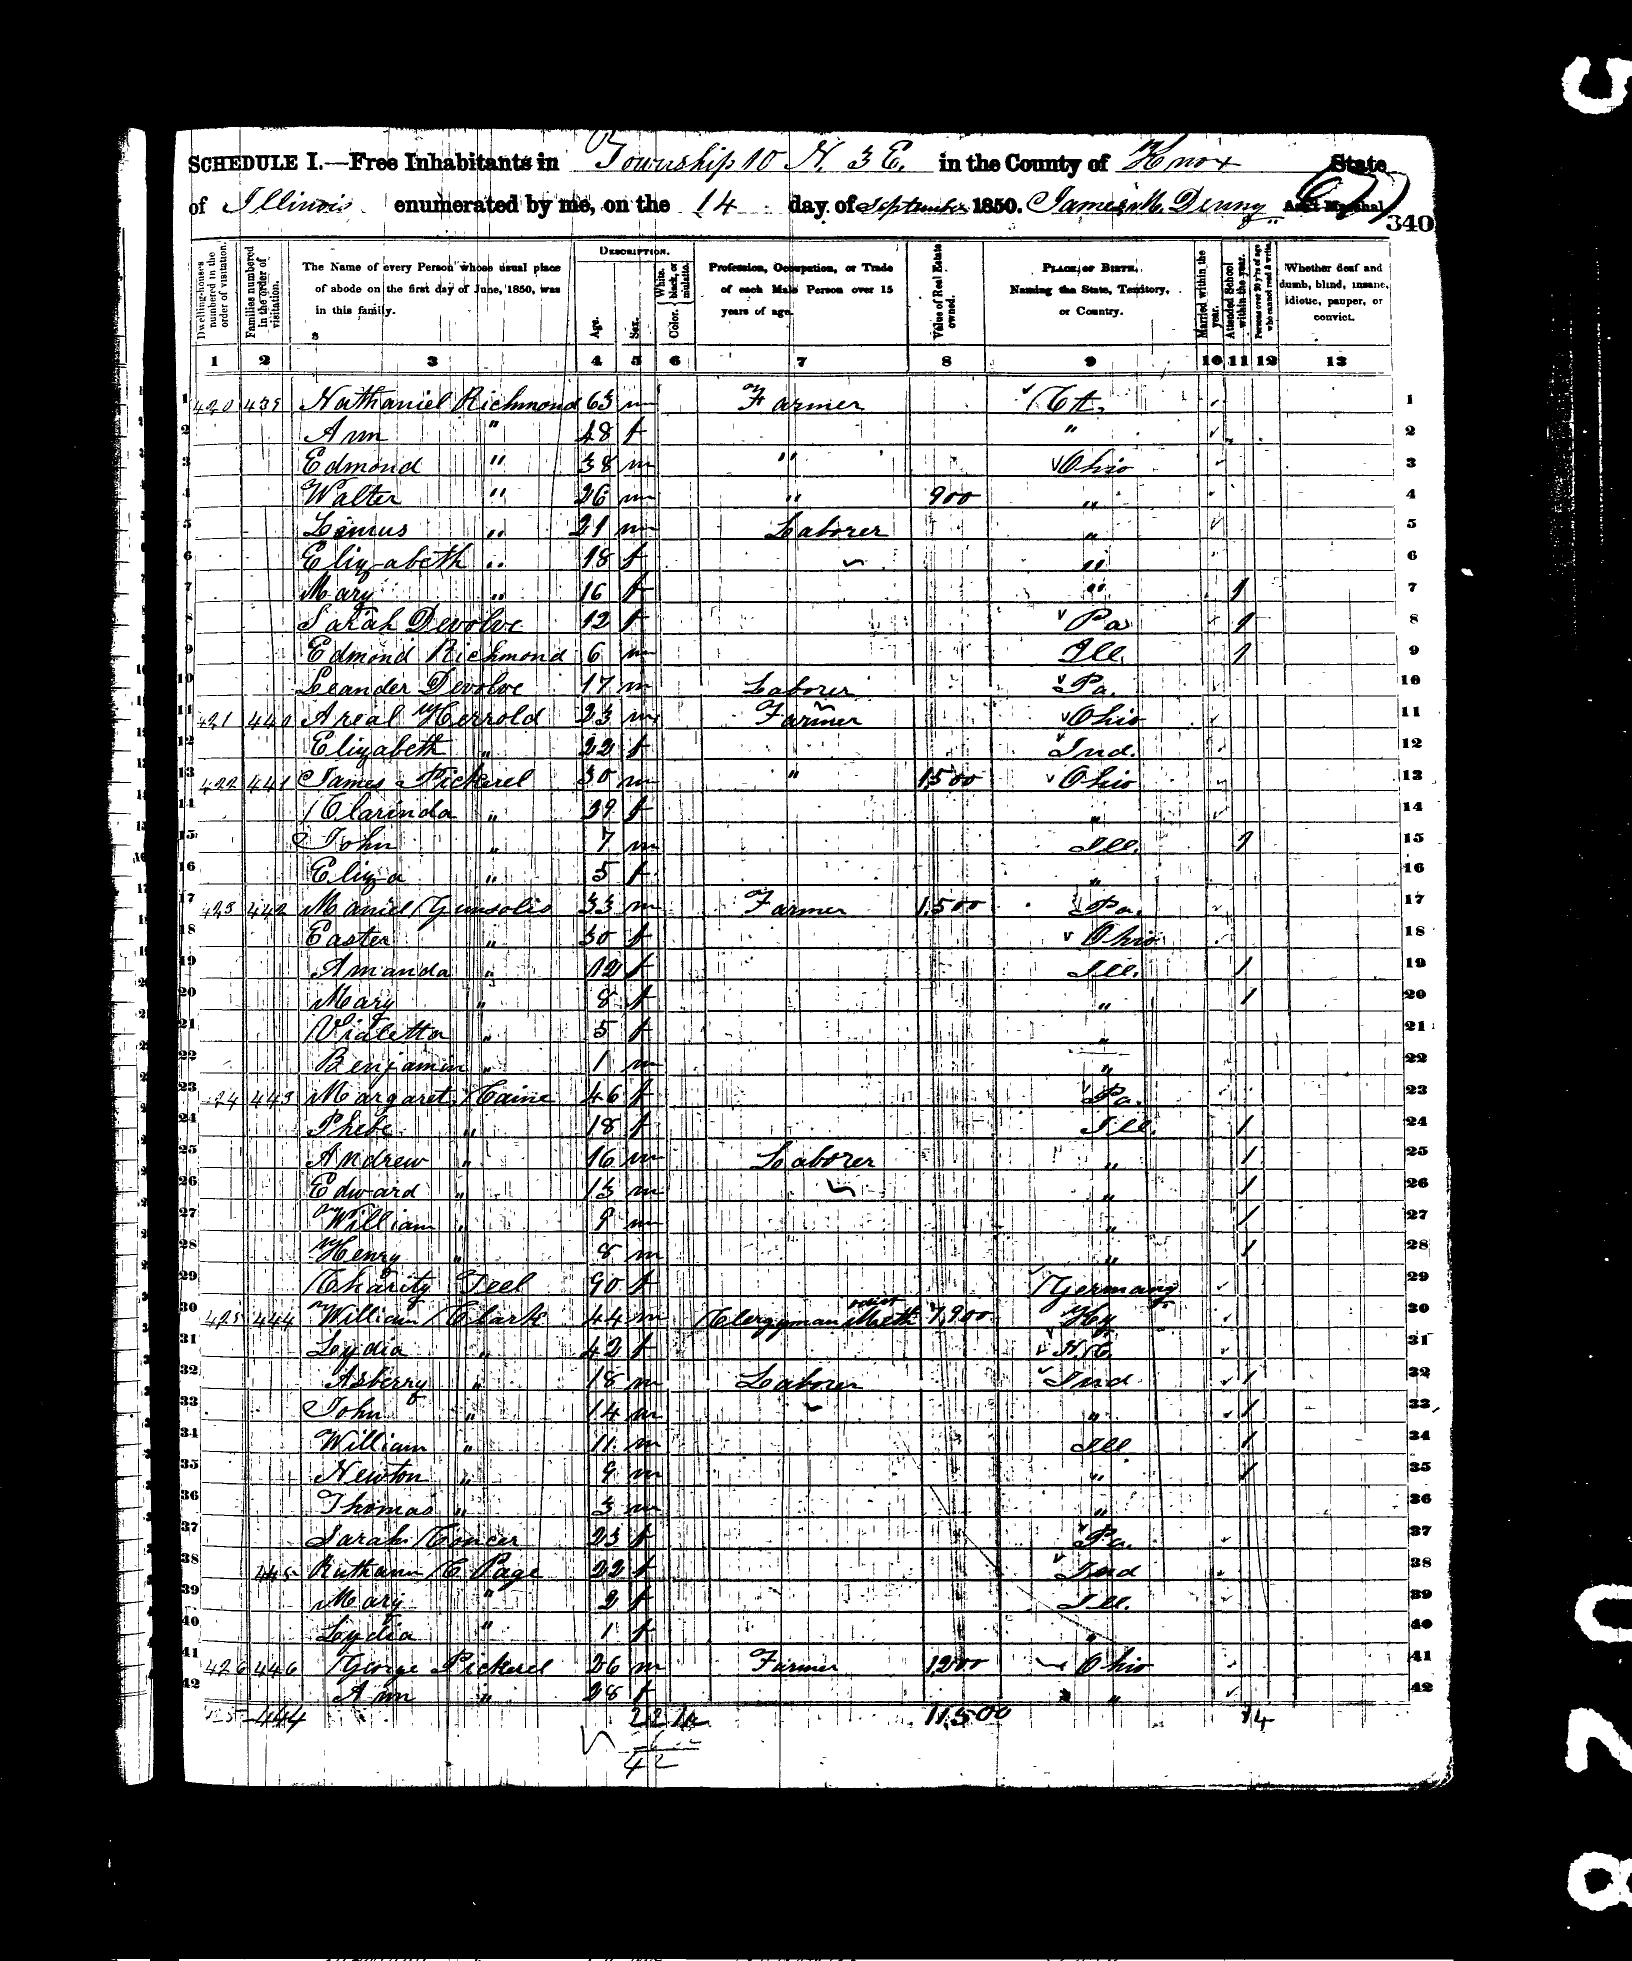 SCHEDULE I.—Free Inhabitants in Township 10 N. 3 E. in the County of Knox State
of Illinois enumerated by me, on the 14 day of September 1850. James M. Denny Ass't Marshal
340
Dwelling-houses numbered in the order of visitation.
Families numbered in the order of visitation.
The Name of every Person whose usual place of abode on the first day of June, 1850, was in this family.
DESCRIPTION.
Age.
Sex.
Color. White, black, or mulatto.
Profession, Occupation, or Trade of each Male Person over 15 years of age.
Value of Real Estate owned.
PLACE OF BIRTH, Naming the State, Territory, or Country.
Married within the year.
Attended School within the year.
Persons over 20 y'rs of age who cannot read & write.
Whether deaf and dumb, blind, insane, idiotic, pauper, or convict.
1 2 3 4 5 6 7 8 9 10 11 12 13
1 420 439 Nathaniel Richmond 63 m Farmer Ct. 1
2 Ann " 48 f " 2
3 Edmond " 38 m " Ohio 3
4 Walter " 26 m " 900 " 4
5 Linus " 21 m Laborer " 5
6 Elizabeth " 18 f " 6
7 Mary " 16 f " 1 7
8 Sarah Devolve 12 f Pa 1 8
9 Edmond Richmond 6 m Ill. 1 9
10 Leander Devolve 17 m Laborer Pa. 10
11 421 440 Areal Herrold 23 m Farmer Ohio 11
12 Elizabeth " 22 f Ind. 12
13 422 441 James Pickerel 30 m " 1,500 Ohio 13
14 Clarinda " 39 f " 14
15 John " 7 m Ill. 1 15
16 Eliza " 5 f " 16
17 423 442 Maniel Gunsolis 33 m Farmer 1,500 Pa. 17
18 Easter " 30 f Ohio 18
19 Amanda " 12 f Ill. 1 19
20 Mary " 8 f " 1 20
21 Violetta " 5 f " 21
22 Benjamin " 1 m " 22
23 424 443 Margaret Caine 46 f Pa. 23
24 Phebe " 18 f Ill. 1 24
25 Andrew " 16 m Laborer " 1 25
26 Edward " 13 m " 1 26
27 William " 9 m " 1 27
28 Henry " 8 m " 1 28
29 Charity Teel 90 f Germany 29
30 425 444 William Clark 44 m Clergyman Meth odist 7,900 Ky 30
31 Lydia " 42 f N.C. 31
32 Asberry " 18 m Laborer Ind 1 32
33 John " 14 m " 1 33
34 William " 11 m Ill 1 34
35 Newton " 9 m " 1 35
36 Thomas " 3 m " 36
37 Sarah Concer 23 f Pa. 37
38 445 Ruthann C Page 22 f Ind 38
39 Mary " 2 f Ill. 39
40 Lydia " 1 f " 40
41 426 446 George Pickerel 26 m Farmer 1,200 Ohio 41
42 Ann " 28 f " 42
444 22 11,500 14
42